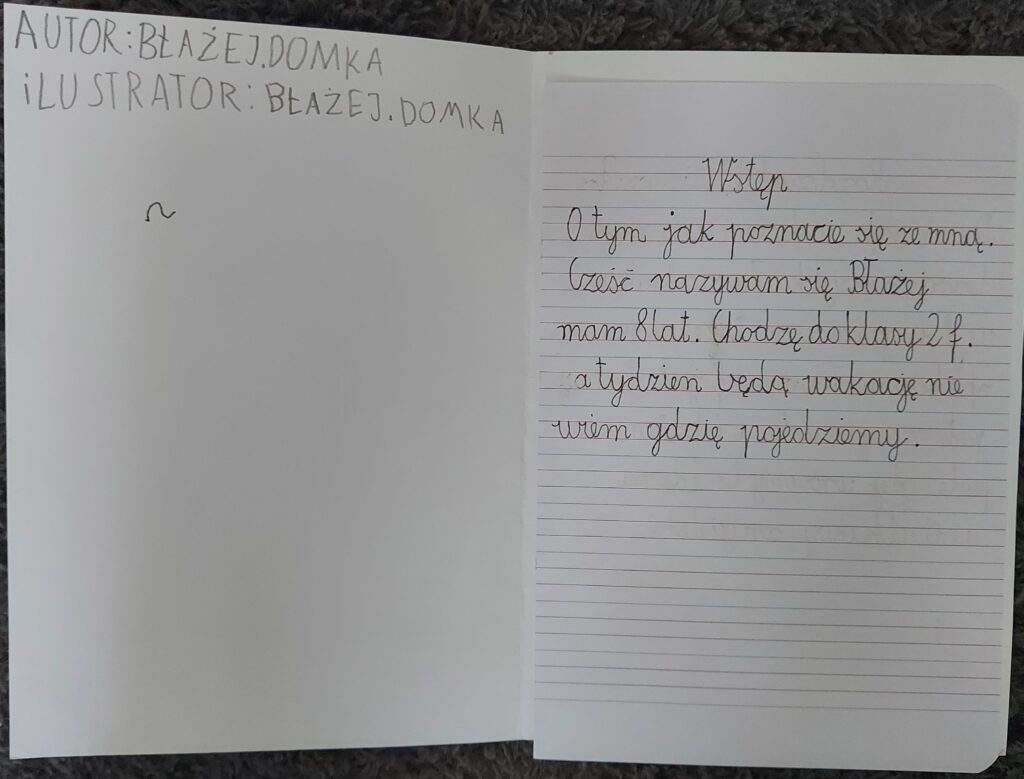 AUTOR:BŁAŻEJ.DOMKA
iLUSTRATOR: BŁAŻEJ.DOMKA
Wstęp
O tym jak poznacie się ze mną.
Cześć nazywam się Błażej
mam 8 lat. Chodzę do klasy 2 f.
a tydzien będą wakację nie
wiem gdzię pojedziemy.